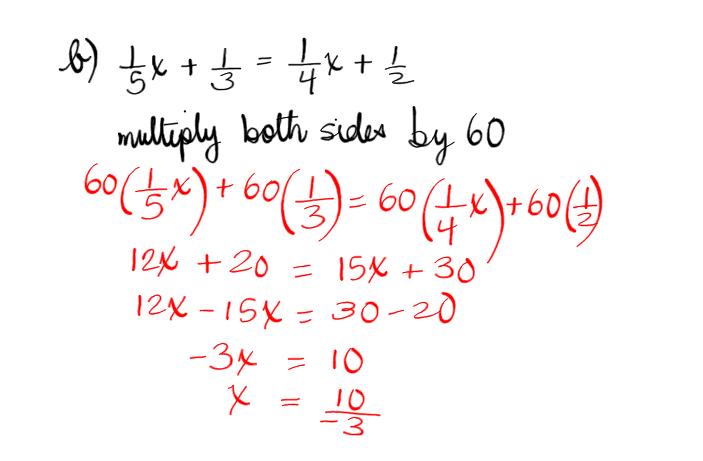 b) 1/5 x + 1/3 = 1/4 x + 1/2
multiply both sides by 60
60(1/5 x) + 60(1/3) = 60(1/4 x) + 60(1/2)
12x + 20 = 15x + 30
12x - 15x = 30 - 20
-3x = 10
x = 10/-3